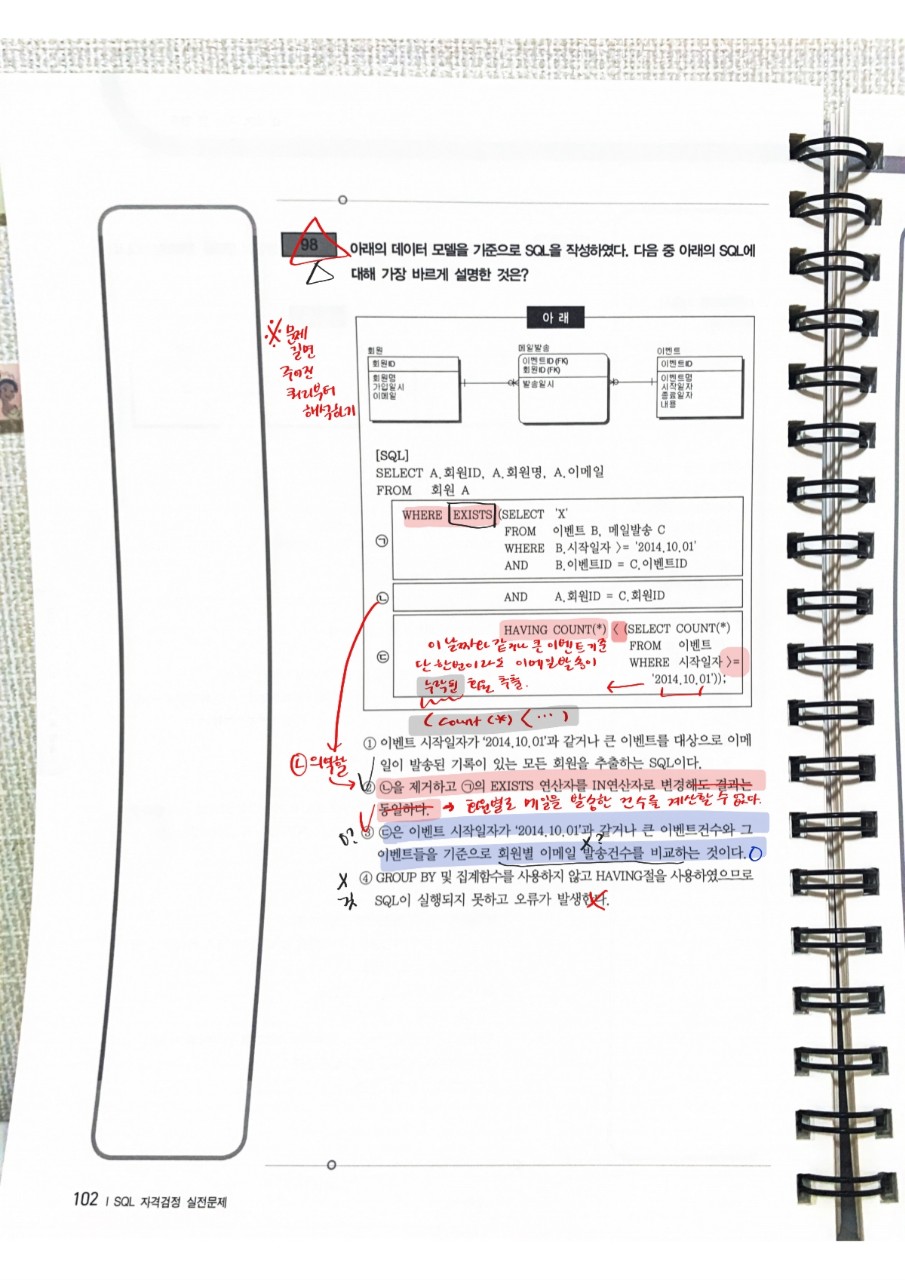 98 아래의 데이터 모델을 기준으로 SQL을 작성하였다. 다음 중 아래의 SQL에
대해 가장 바르게 설명한 것은?
아 래
※ 문제
길면
주어진
쿼리부터
해석하기
회원
회원ID
회원명
가입일시
이메일
메일발송
이벤트ID (FK)
회원ID (FK)
발송일시
이벤트
이벤트ID
이벤트명
시작일자
종료일자
내용
[SQL]
SELECT A.회원ID, A.회원명, A.이메일
FROM 회원 A
㉠ WHERE EXISTS (SELECT 'X'
FROM 이벤트 B, 메일발송 C
WHERE B.시작일자 >= '2014.10.01'
AND B.이벤트ID = C.이벤트ID
㉡ AND A.회원ID = C.회원ID
㉢ HAVING COUNT(*) < (SELECT COUNT(*)
FROM 이벤트
WHERE 시작일자 >=
'2014.10.01'));
이 날짜와 같거나 큰 이벤트 기준
단 한번이라도 이메일 발송이
누락된 회원 추출.
( Count (*) < ··· )
① 이벤트 시작일자가 '2014.10.01'과 같거나 큰 이벤트를 대상으로 이메
일이 발송된 기록이 있는 모든 회원을 추출하는 SQL이다.
㉡ 의 역할
② ㉡을 제거하고 ㉠의 EXISTS 연산자를 IN연산자로 변경해도 결과는
동일하다. → 회원별로 메일을 발송한 건수를 계산할 수 없다.
0? ③ ㉢은 이벤트 시작일자가 '2014.10.01'과 같거나 큰 이벤트건수와 그
X?
이벤트들을 기준으로 회원별 이메일 발송건수를 비교하는 것이다. O
X ④ GROUP BY 및 집계함수를 사용하지 않고 HAVING절을 사용하였으므로
SQL이 실행되지 못하고 오류가 발생한다.
102 | SQL 자격검정 실전문제